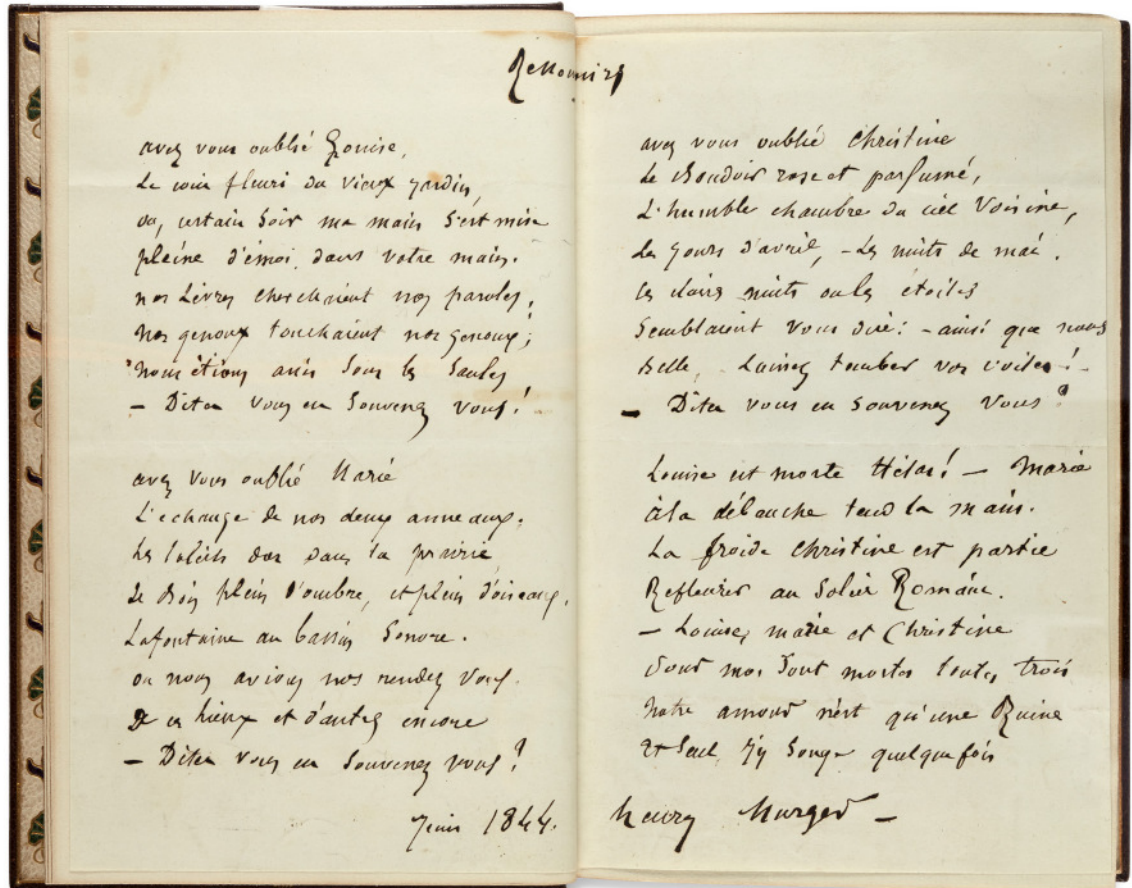 Renovaire
avez vous oublié Louise,
Le coin fleuri du vieux jardin,
ou, certain soir ma main s'est mise
pleine d'émoi dans votre main.
nos Lèvres cherchaient nos paroles,
nos genoux touchaient nos genoux;
nous étions assis sous les saules
— Dites vous en souvenez vous!
avez vous oublié Marie
L'echange de nos deux anneaux.
Les soleils dor dans la prairie
Le bois plein d'ombre, et plein d'oiseaux,
La fontaine au bassin sonore.
ou nous avions nos rendez vous.
De ces lieux et d'autres encore
— Dites vous en souvenez vous?
juin 1844.
avez vous oublié Christine
Le Boudoir rose et parfumé,
L'humble chambre du ciel Voisine,
Les jours d'avril, - Les nuits de mai.
ces claires nuits ou les étoiles
Semblaient vous dire: - ainsi que nous
Belle, Laissez tomber vos voiles! -
— Dites vous en souvenez vous?
Louise est morte Hélas! — Marie
à la débauche tend la main.
La froide Christine est partie
Refleurir au Soleil Romain.
— Louise, marie et Christine
Pour moi sont mortes toutes trois
Notre amour n'est qu'une Ruine
Et seul j'y songe quelquefois
henry Murger —